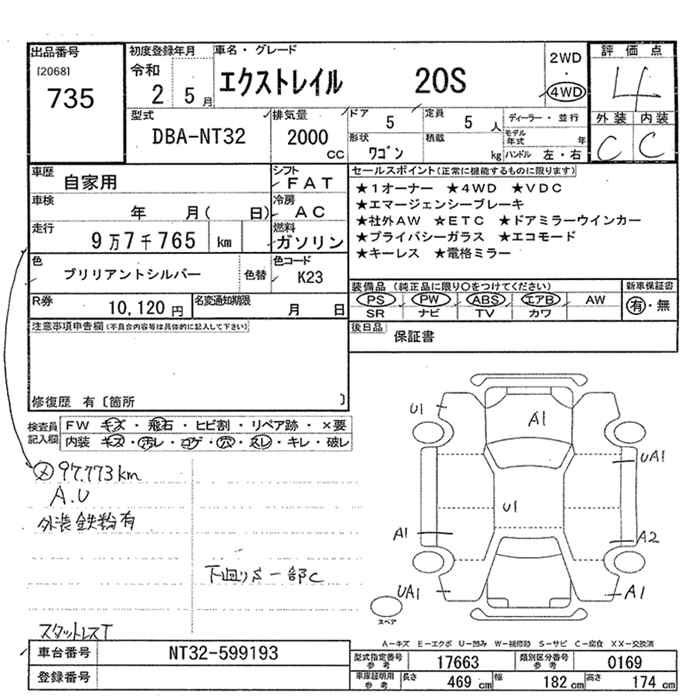 出品番号
[2068]
735
初度登録年月
令和
2 5月
車名・グレード
エクストレイル 20S
2WD
・
4WD
評価点
4
外装 内装
C C
型式
DBA-NT32
排気量
2000
CC
ドア
5
定員
5 人
形状
ワゴン
積載
kg
ディーラー・並行
モデル年式 年
ハンドル 左・右
車歴
自家用
シフト
FAT
車検
年 月( 日)
冷房
AC
走行
9万7千765 km
燃料
ガソリン
色
ブリリアントシルバー
色替
色コード
K23
R券
10,120円
名変通知期限
月 日
セールスポイント(正常に機能するものに限ります)
★1オーナー ★4WD ★VDC
★エマージェンシーブレーキ
★社外AW ★ETC ★ドアミラーウインカー
★プライバシーガラス ★エコモード
★キーレス ★電格ミラー
装備品 (純正品に限り○をつけてください)
PS PW ABS エアB AW
SR ナビ TV カワ
新車保証書
有・無
後日品
保証書
注意事項申告欄(不具合内容等は具体的に記入して下さい)
修復歴 有〔箇所 〕
検査員記入欄
FW キズ・飛石・ヒビ割・リペア跡・×要
内装 キズ・汚レ・コゲ・穴・スレ・キレ・破レ
メ 97.773km
A.U
外装鉄粉有
下廻りS一部C
スタットレスT
U1
A1
UA1
U1
A1
A2
UA1
A1
スペア
A-キズ E-エクボ U-凹み W-補修跡 S-サビ C-腐食 XX-交換済
車台番号
NT32-599193
登録番号
型式指定番号
参考
17663
類別区分番号
参考
0169
車庫証明用
参考
長さ 469 cm 幅 182 cm 高さ 174 cm